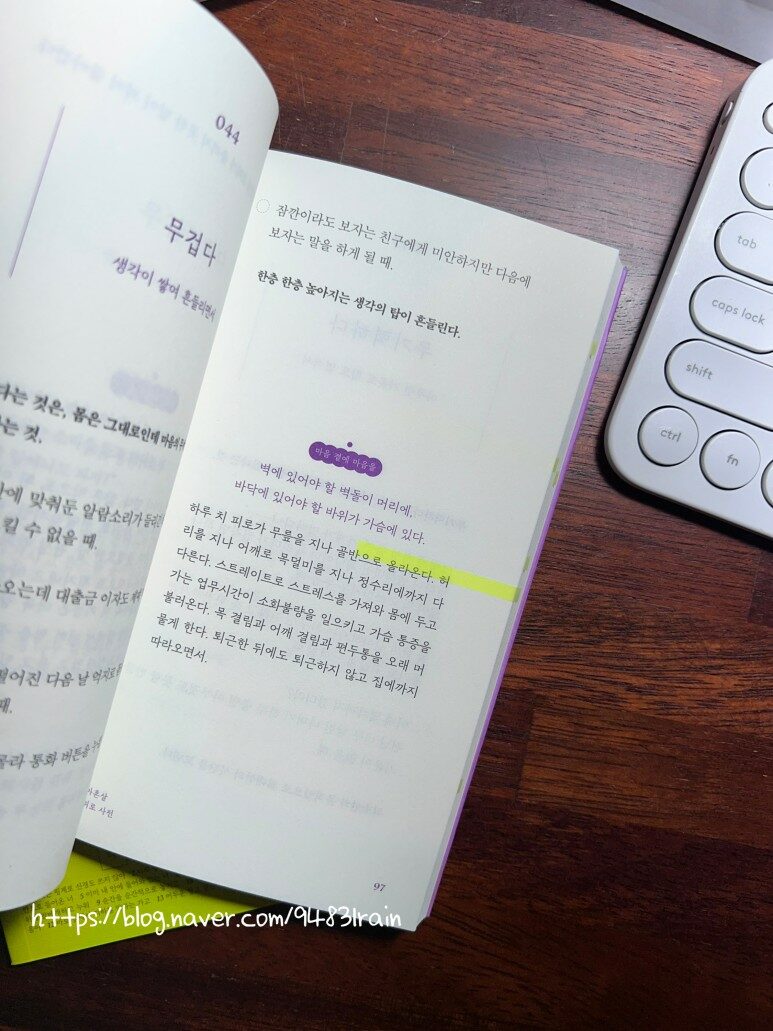 044
무겁다
생각이 쌓여 흔들리면서
다는 것은, 몸은 그대로인데 마음의
는 것.
에 맞춰둔 알람소리가 들리
킬 수 없을 때.
오는데 대출금 이자도
어진 다음 날 억지로
때.
라 통화 버튼을
사전
잠깐이라도 보자는 친구에게 미안하지만 다음에
보자는 말을 하게 될 때.
한층 한층 높아지는 생각의 탑이 흔들린다.
마음 곁에 마음을
벽에 있어야 할 벽돌이 머리에,
바닥에 있어야 할 바위가 가슴에 있다.
하루 치 피로가 무릎을 지나 골반으로 올라온다. 허
리를 지나 어깨로 목덜미를 지나 정수리에까지 다
다른다. 스트레이트로 스트레스를 가져와 몸에 두고
가는 업무시간이 소화불량을 일으키고 가슴 통증을
불러온다. 목 결림과 어깨 결림과 편두통을 오래 머
물게 한다. 퇴근한 뒤에도 퇴근하지 않고 집에까지
따라오면서.
97
tab
caps lock
shift
ctrl
fn
https://blog.naver.com/9483lrain